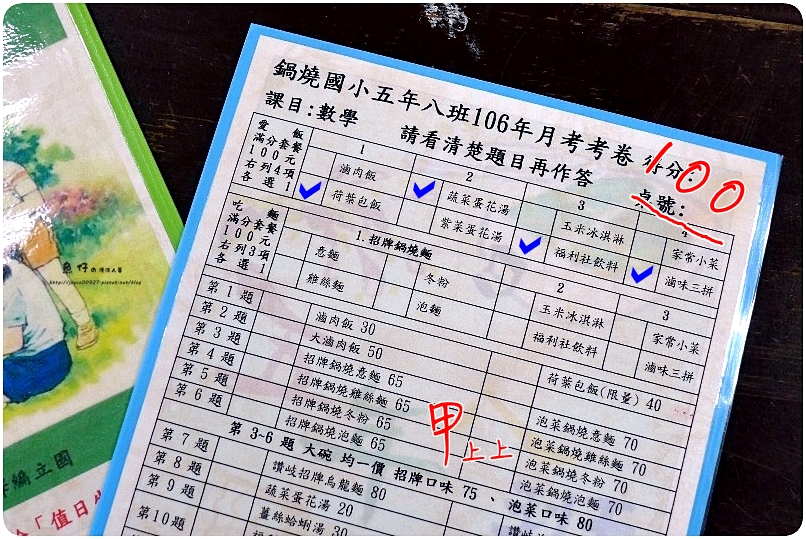 鍋燒國小五年八班106年月考考卷 得分:
100
課目:數學 請看清楚題目再作答 桌號:
愛飯
滿分套餐
100元
右列4項
各選1
1 2 3 4
滷肉飯 蔬菜蛋花湯 玉米冰淇淋 家常小菜
荷葉包飯 紫菜蛋花湯 福利社飲料 滷味三拼
吃麵
滿分套餐
100元
右列3項
各選1
1.招牌鍋燒麵 2 3
意麵 冬粉 玉米冰淇淋 家常小菜
雞絲麵 泡麵 福利社飲料 滷味三拼
第1題 滷肉飯 30 荷葉包飯(限量) 40
第2題 大滷肉飯 50
第3題 招牌鍋燒意麵 65 泡菜鍋燒意麵 70
第4題 招牌鍋燒雞絲麵 65 泡菜鍋燒雞絲麵 70
第5題 招牌鍋燒冬粉 65 泡菜鍋燒冬粉 70
第6題 招牌鍋燒泡麵 65 泡菜鍋燒泡麵 70
甲上上
第3~6題 大碗 均一價 招牌口味 75、泡菜口味 80
第7題 讚岐招牌烏龍麵 80
第8題 蔬菜蛋花湯 20
第9題 薑絲蛤蜊湯 30
第10題
魚仔
立國
「值日